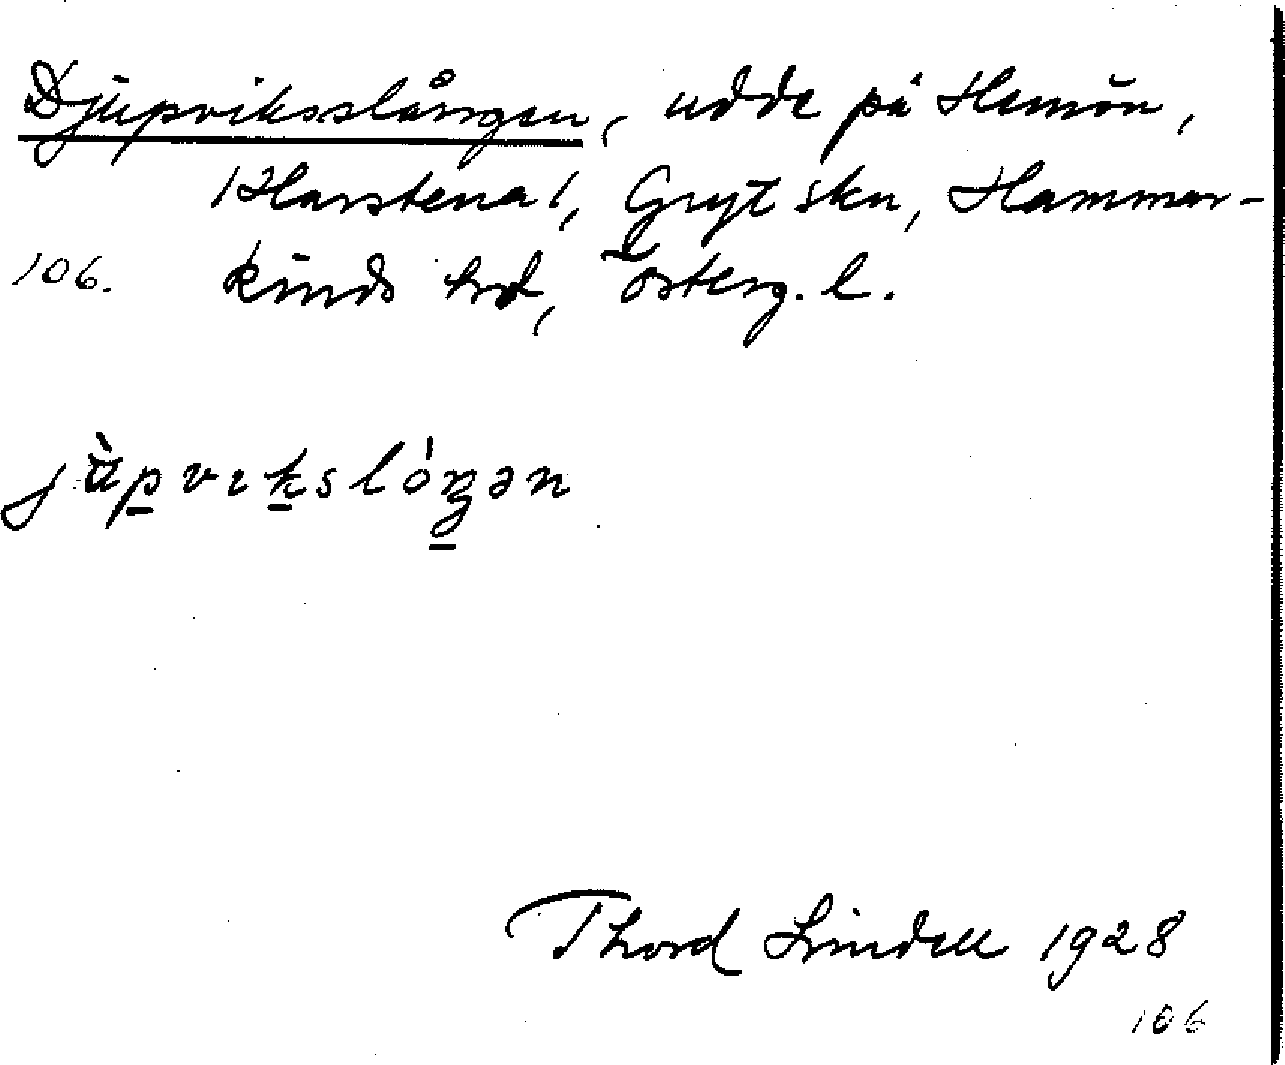 Djupviksslången, udde på Hemön,
/Harstena/, Gryt skn, Hammar-
106. kinds hd, Österg. l.
jùpvikslóŋən
Thord Lindell 1928
106